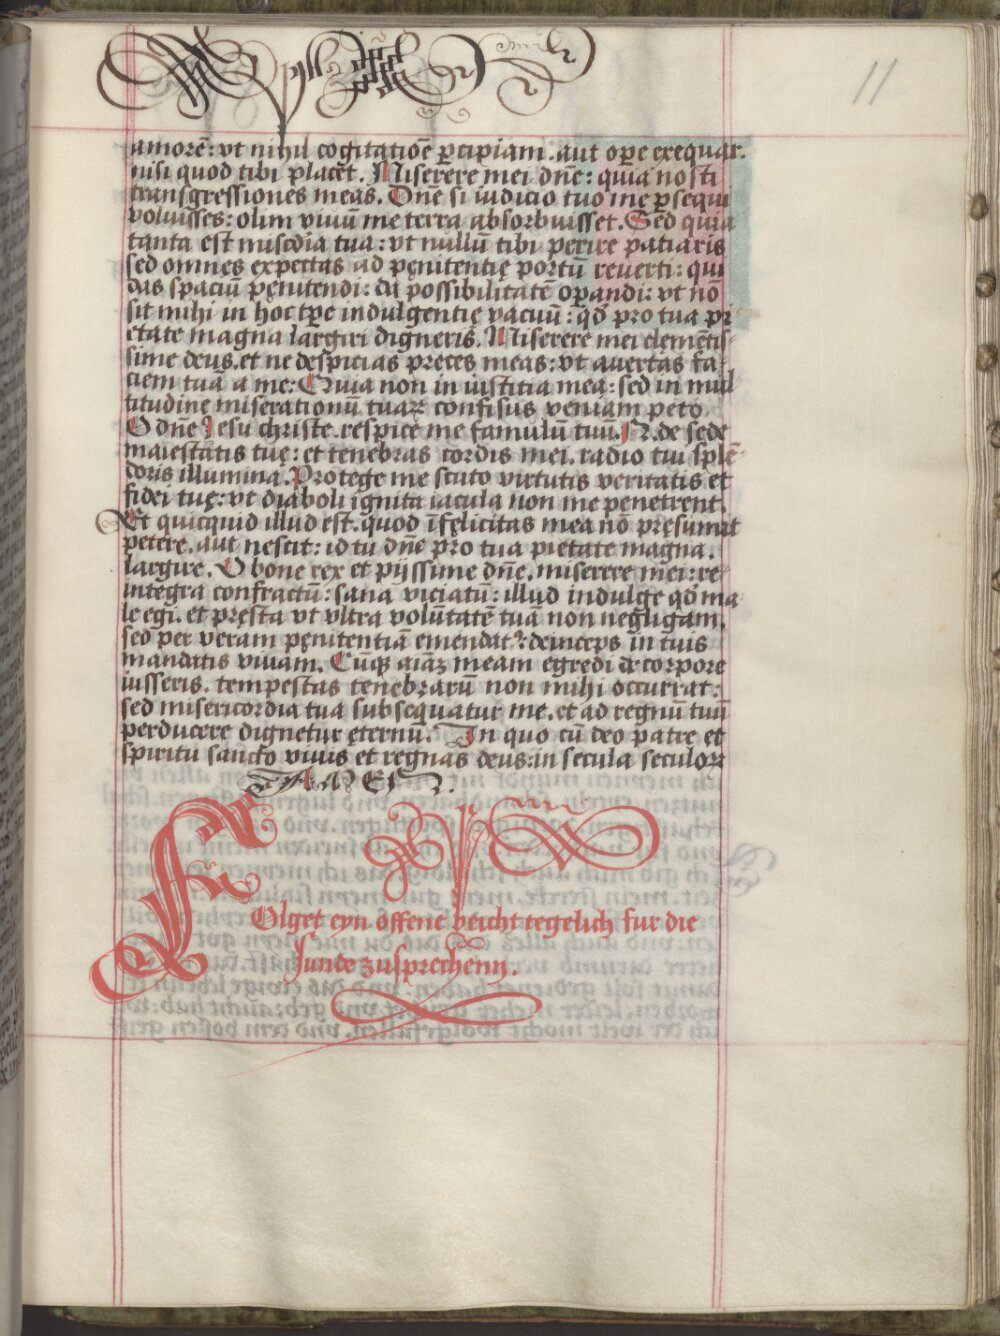 11
amorē: vt nihil cogitatiōe ꝑcipiam. aut oꝑe exequar.
nisi quod tibi placet. Miserere mei dn̄e: quia nosti
transgressiones meas. Dn̄e si iudicio tuo me ꝑsequi
voluisses: olim viuū me terra absorbuisset. Sed quia
tanta est mis̄cdia tua: vt nullū tibi perire patiaris
sed omnes expectas ad pęnitentię portū reuerti: qui
das spaciū pęnitendi: da possibilitatē oꝑandi: vt nō
sit mihi in hoc tꝑe indulgentię vacuū: qđ pro tua pi-
etate magna largiri digneris. Miserere mei clemētis-
sime deus. et ne despicias preces meas: vt auertas fa-
ciem tuā a me: Quia non in iusticia mea: sed in mul
titudine miserationū tuaꝝ confisus veniam peto.
O dn̄e Jesu christe. respice me famulū tuū. N. de sede
maiestatis tuę: et tenebras cordis mei. radio tui splē-
doris illumina. Protege me scuto virtutis veritatis et
fidei tuę: vt diaboli ignita iacula non me penetrent.
Et quicquid illud est. quod īfęlicitas mea nō pręsumit
petere. aut nescit: id tu dn̄e pro tua pietate magna.
largire. O bone rex et pijssime dn̄e. miserere mei: re-
integra confractū: sana viciatū: illud indulge qđ ma-
le egi. et pręsta vt vltra volūtatē tuā non negligam.
sed per veram pęnitentiā emendatꝰ: deinceps in tuis
mandatis viuam. Cūqꝫ aīaꝫ meam egredi de corpore
iusseris. tempestas tenebrarū non mihi occurrat:
sed misericordia tua subsequatur me. et ad regnū tuū
perducere dignetur ęternū. In quo cū deo patre et
spiritu sancto viuis et regnas deus: in secula seculoꝝ
AMEN.
FOlget eyn offene beicht tegelich fur die
sunde zusprechenn.